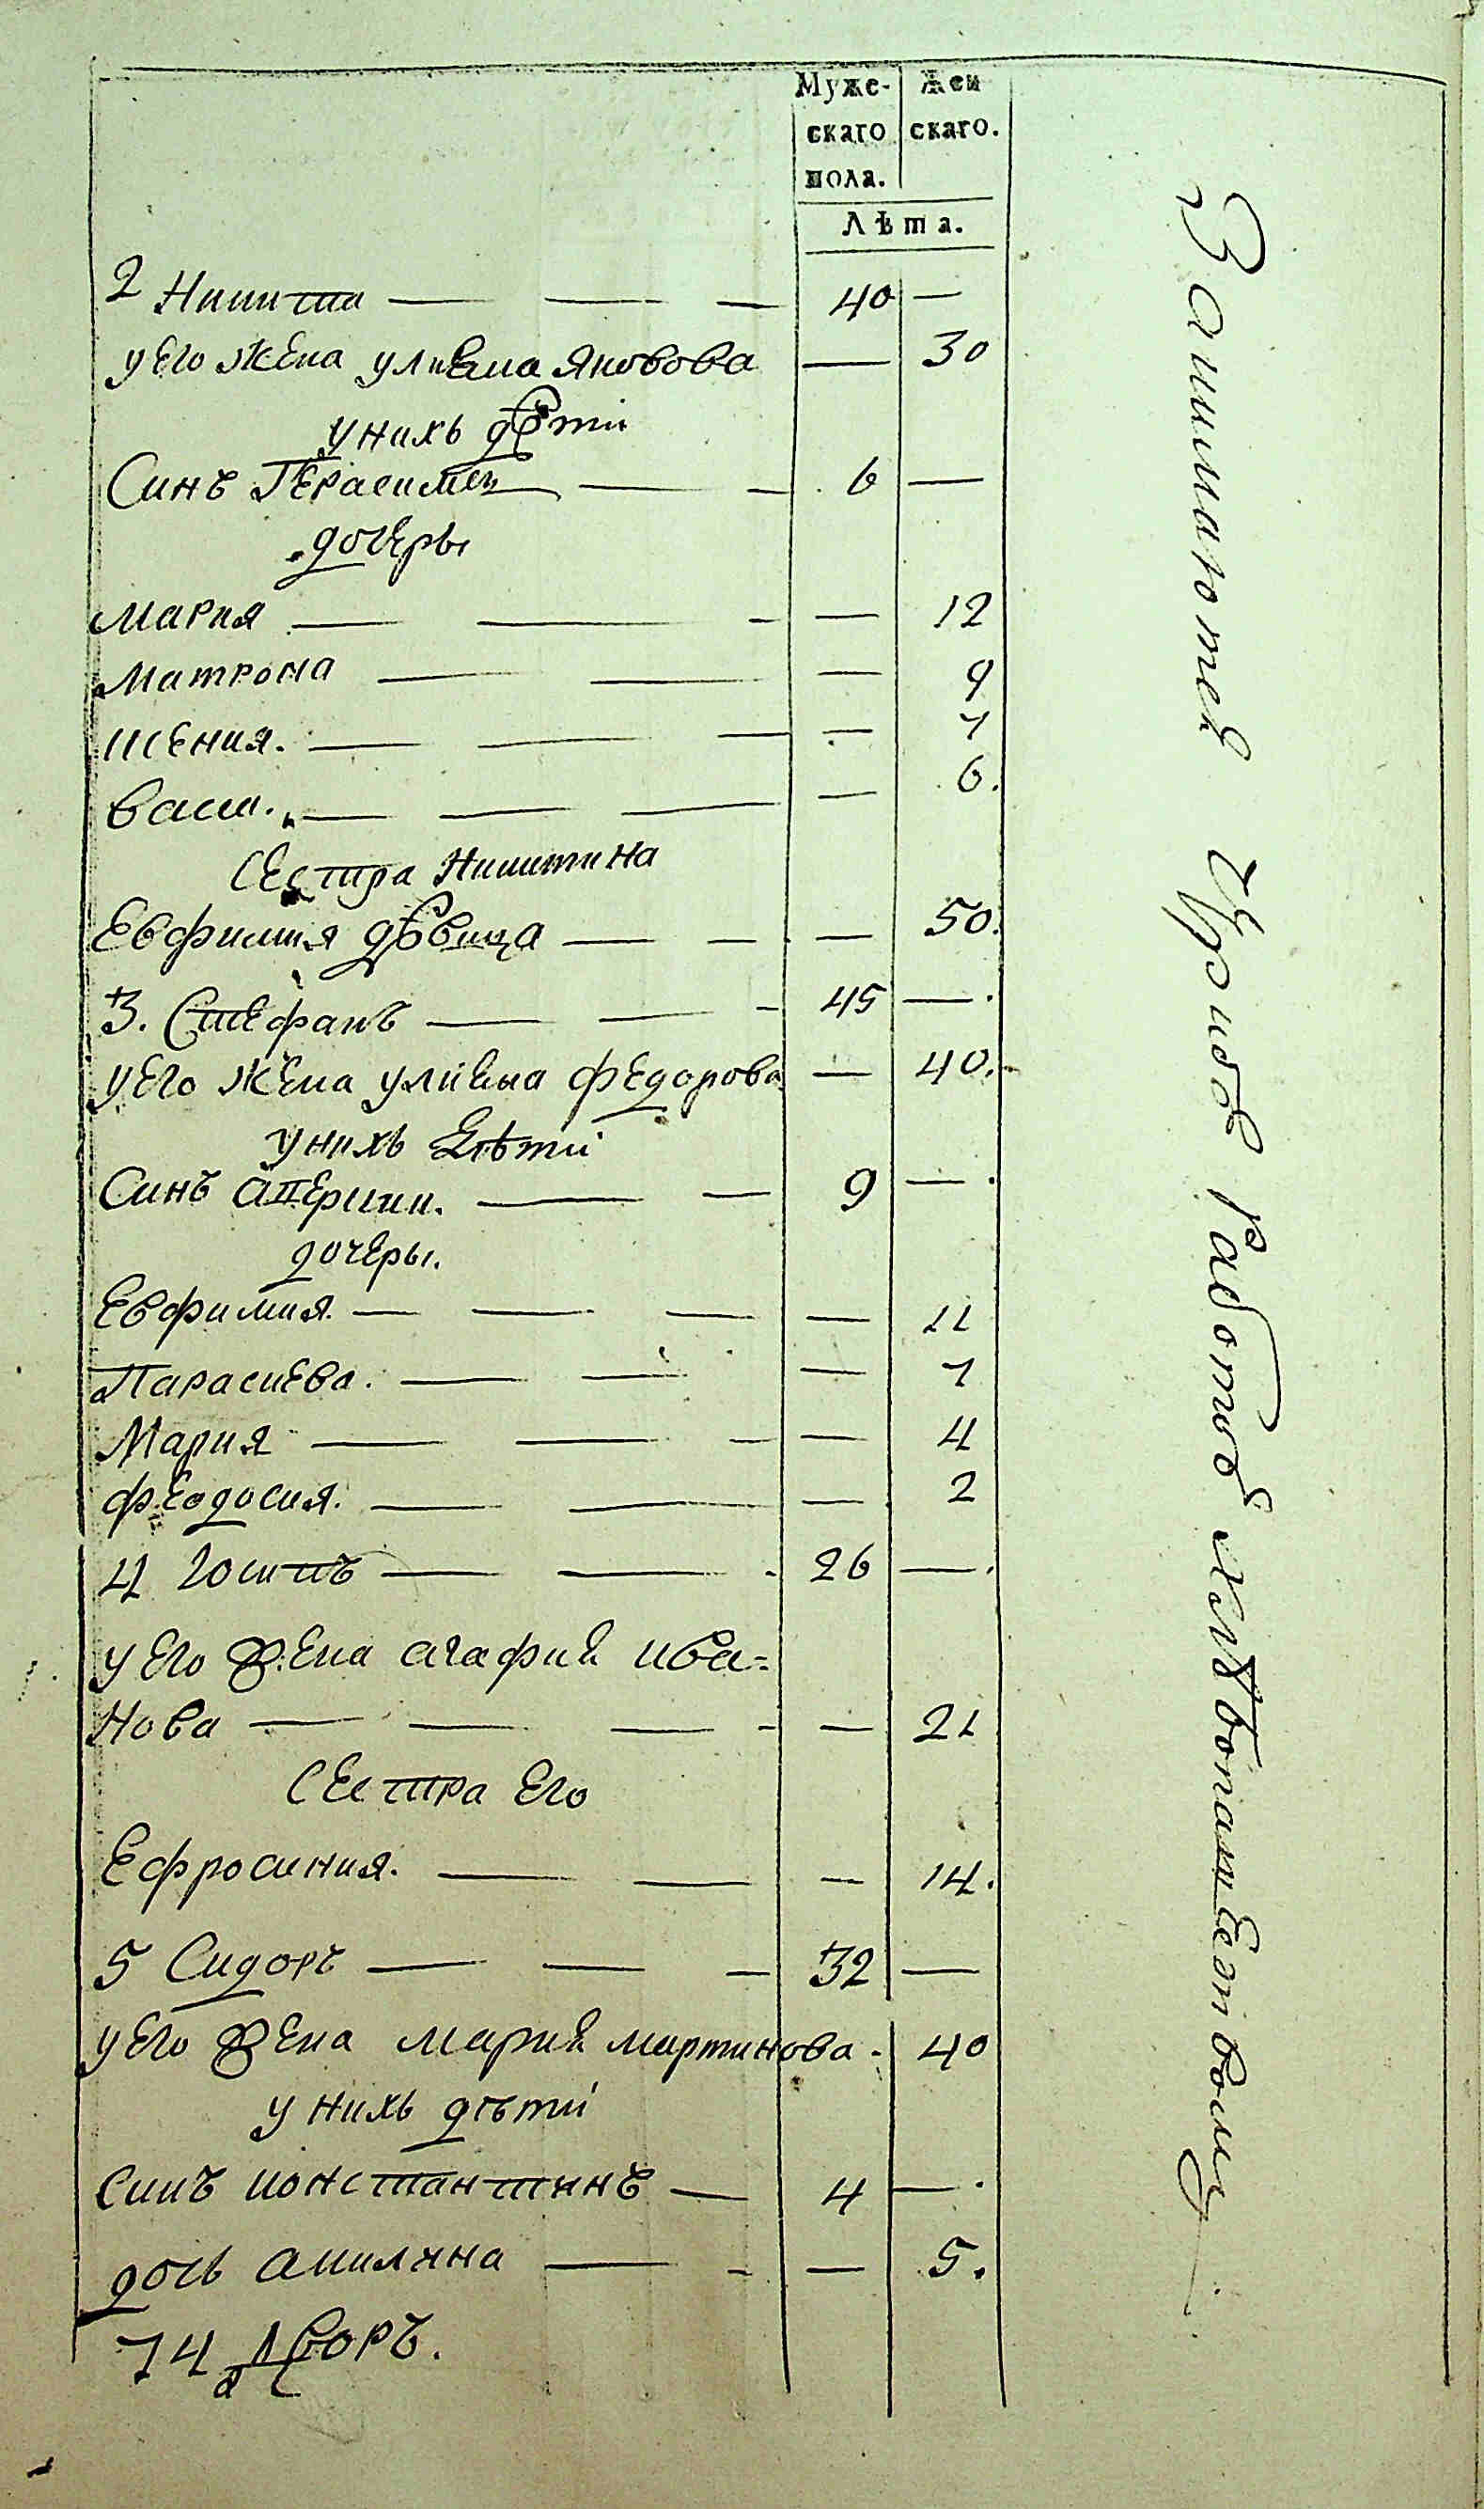 Муже-
скаго
пола.
Жен
скаго.
Лѣта.
2 Никита — — — 40 —
у его жена улиана Яковова — 30
у нихъ дѣти
Синъ Герасимъ — — 6 —
дочеры
Мария — — — — 12
Матрона — — — 9
ксения. — — — — 7
васса. — — — — 6.
Сестра Никитина
Евфимия дѣвица — — — 50.
3. Стефанъ — — — 45 —.
у его жена улиана федорова — 40.
у нихъ дѣти
Синъ аверкии. — — 9 —.
дочеры.
Евфимия — — — — 11
Параскева. — — — 7
Мария — — — — 4
феодосия. — — — 2
4 Іосипъ — — — 26 —.
у его жена агафия ива=
нова — — — — — 21
Сестра его
Ефросиния. — — — 14.
5 Сидоръ — — — 32 —
у его жена мария мартинова. 40
у нихъ дѣти
Синъ константинъ — 4 —.
дочь акилина — — — 5.
74 дворъ.
Занимается
работою
хлѣбопашествомъ